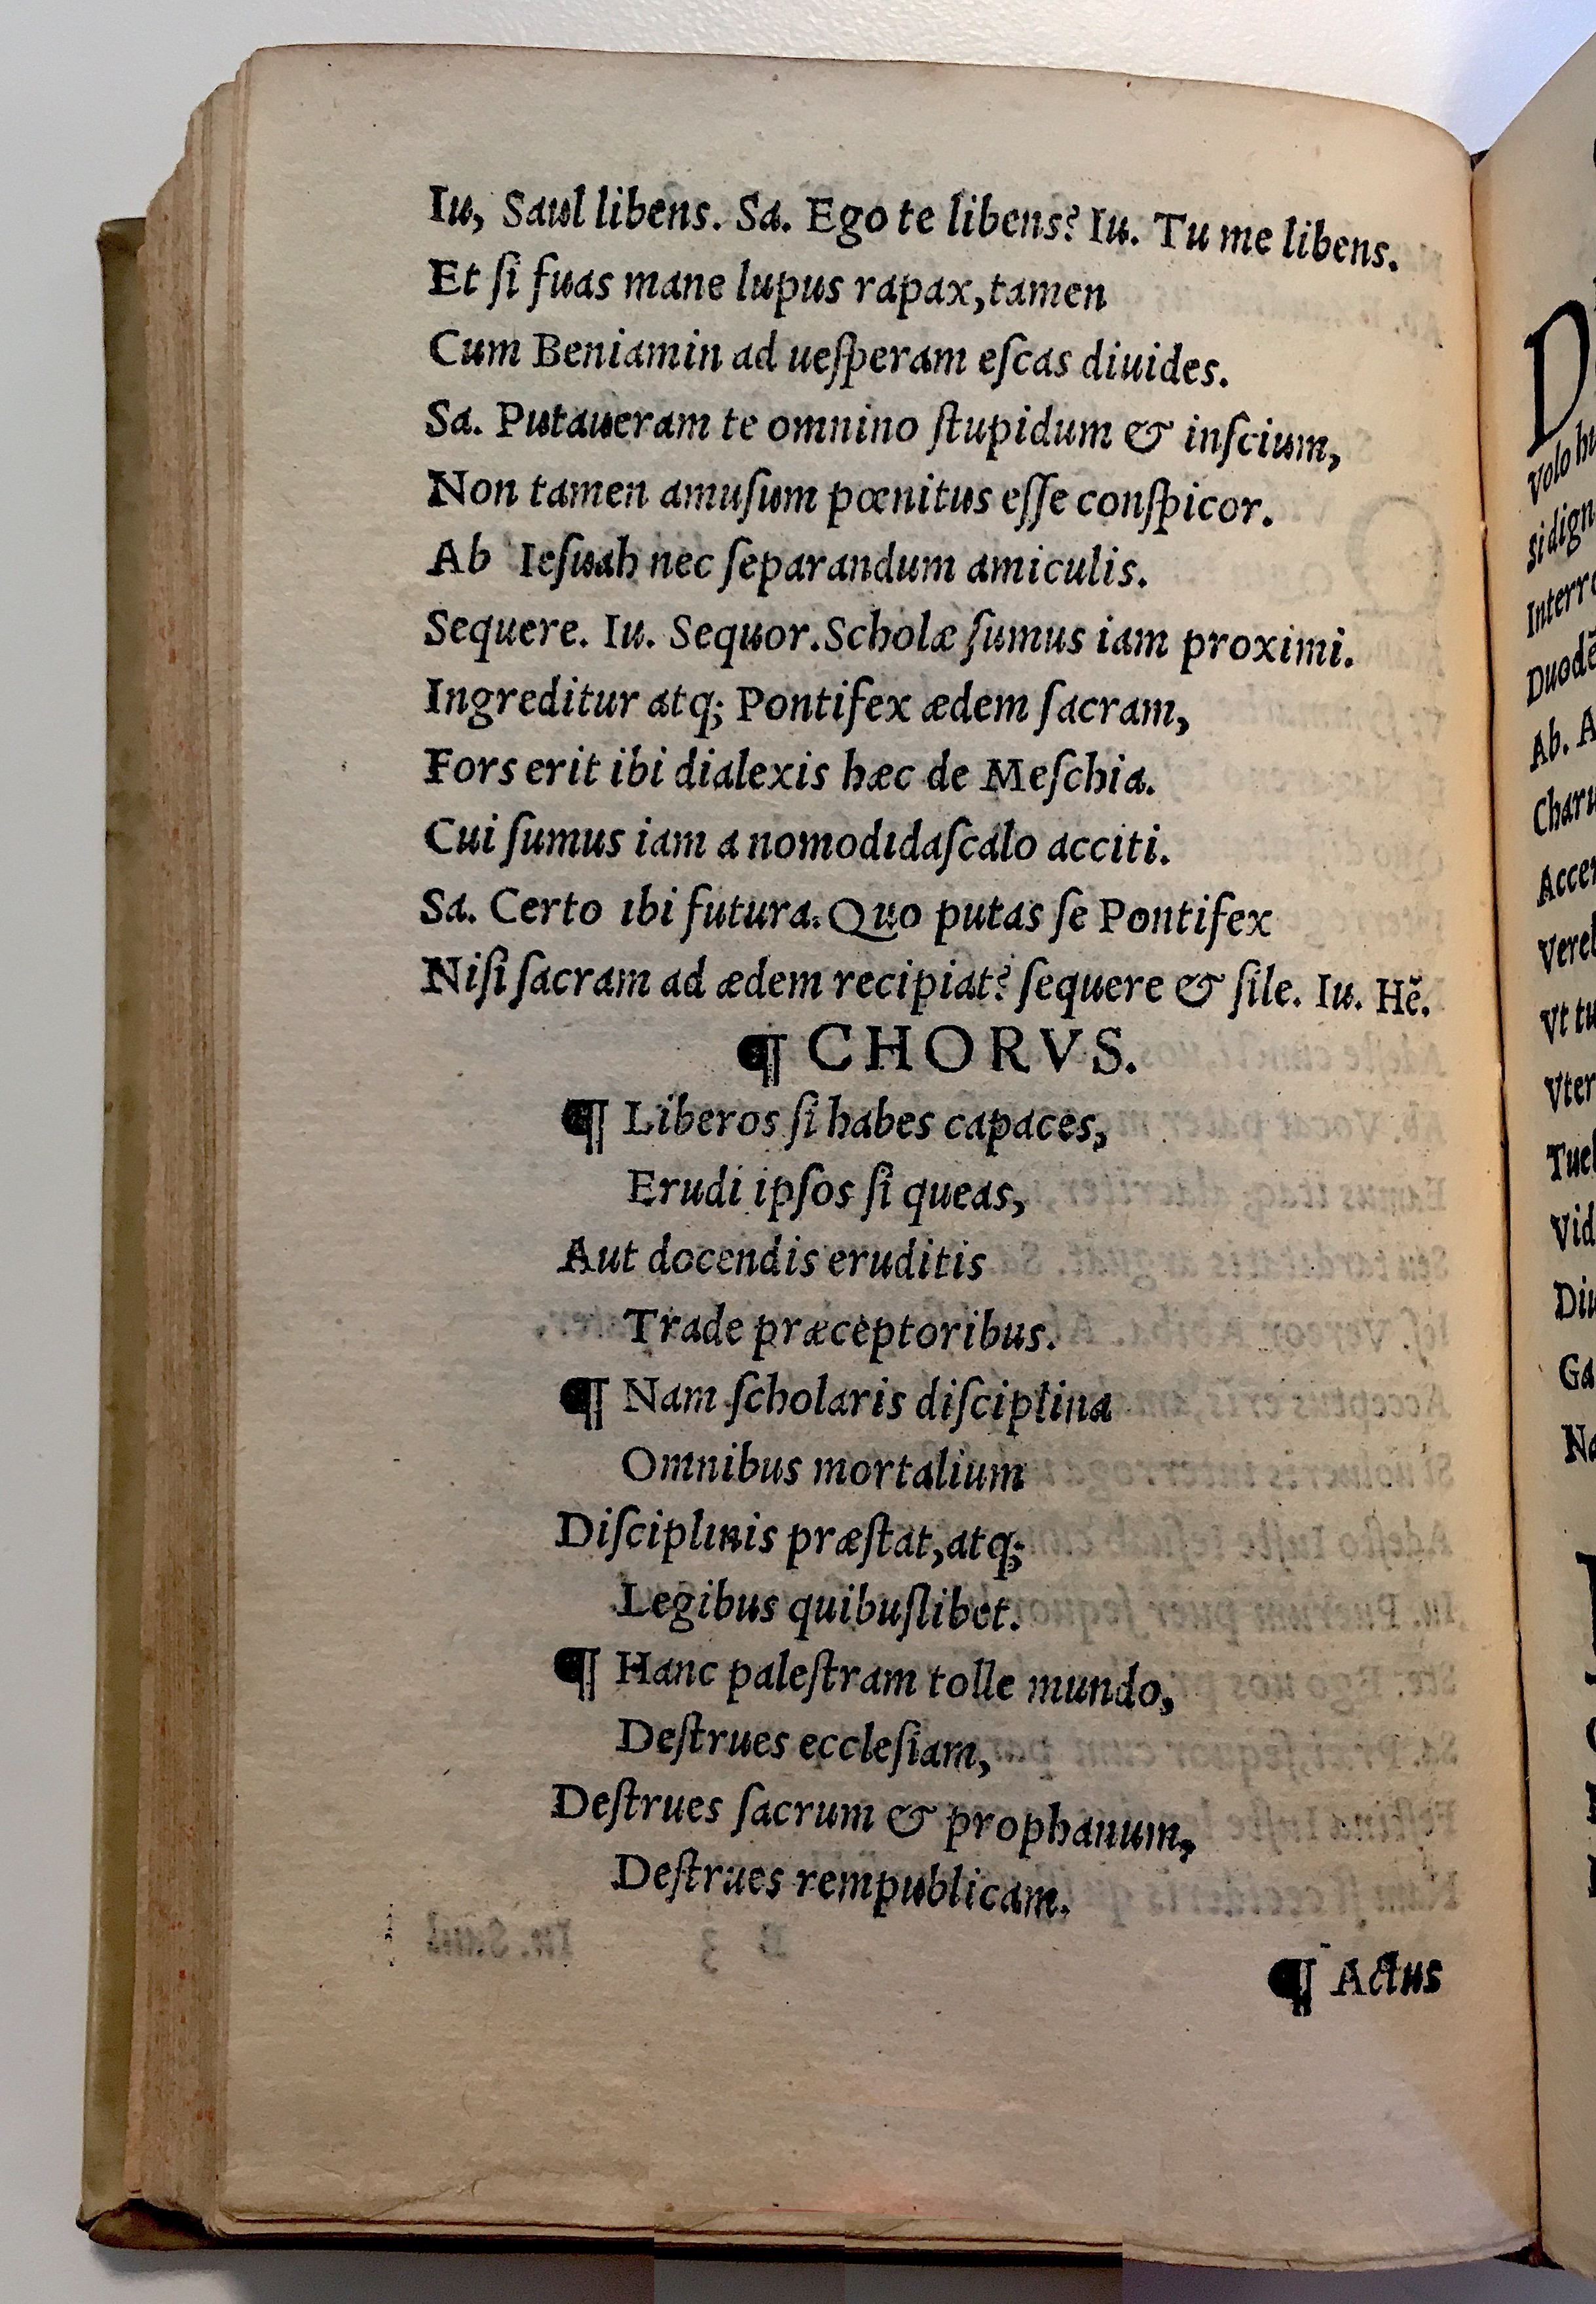 Iu, Saul libens. Sa. Ego te libens? Iu. Tu me libens.
Et ſi fuas mane lupus rapax,tamen
Cum Beniamin ad ueſperam eſcas diuides.
Sa. Putaueram te omnino ſtupidum & inſcium,
Non tamen amuſum pœnitus eſſe conſpicor.
Ab Ieſuah nec ſeparandum amiculis.
Sequere. Iu. Sequor.Scholæ ſumus iam proximi.
Ingreditur atq; Pontifex ædem ſacram,
Fors erit ibi dialexis hæc de Meſchia.
Cui ſumus iam a nomodidaſcalo acciti.
Sa. Certo ibi futura. Quo putas ſe Pontifex
Niſi ſacram ad ædem recipiat? ſequere & ſile. Iu. Hẽ.
¶ CHORVS.
¶ Liberos ſi habes capaces,
Erudi ipſos ſi queas,
Aut docendis eruditis
Trade præceptoribus.
¶ Nam ſcholaris diſciplina
Omnibus mortalium
Diſciplinis præſtat,atq;
Legibus quibuſlibet.
¶ Hanc paleſtram tolle mundo,
Deſtrues eccleſiam,
Deſtrues ſacrum & prophanum,
Deſtrues rempublicam.
¶ Actus
Volo
Si dign
Interr
Ab. A
Vt tu
Vid